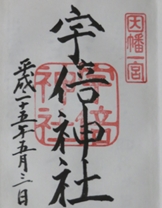 因幡一宮
宇倍神社
平成二十五年五月三日